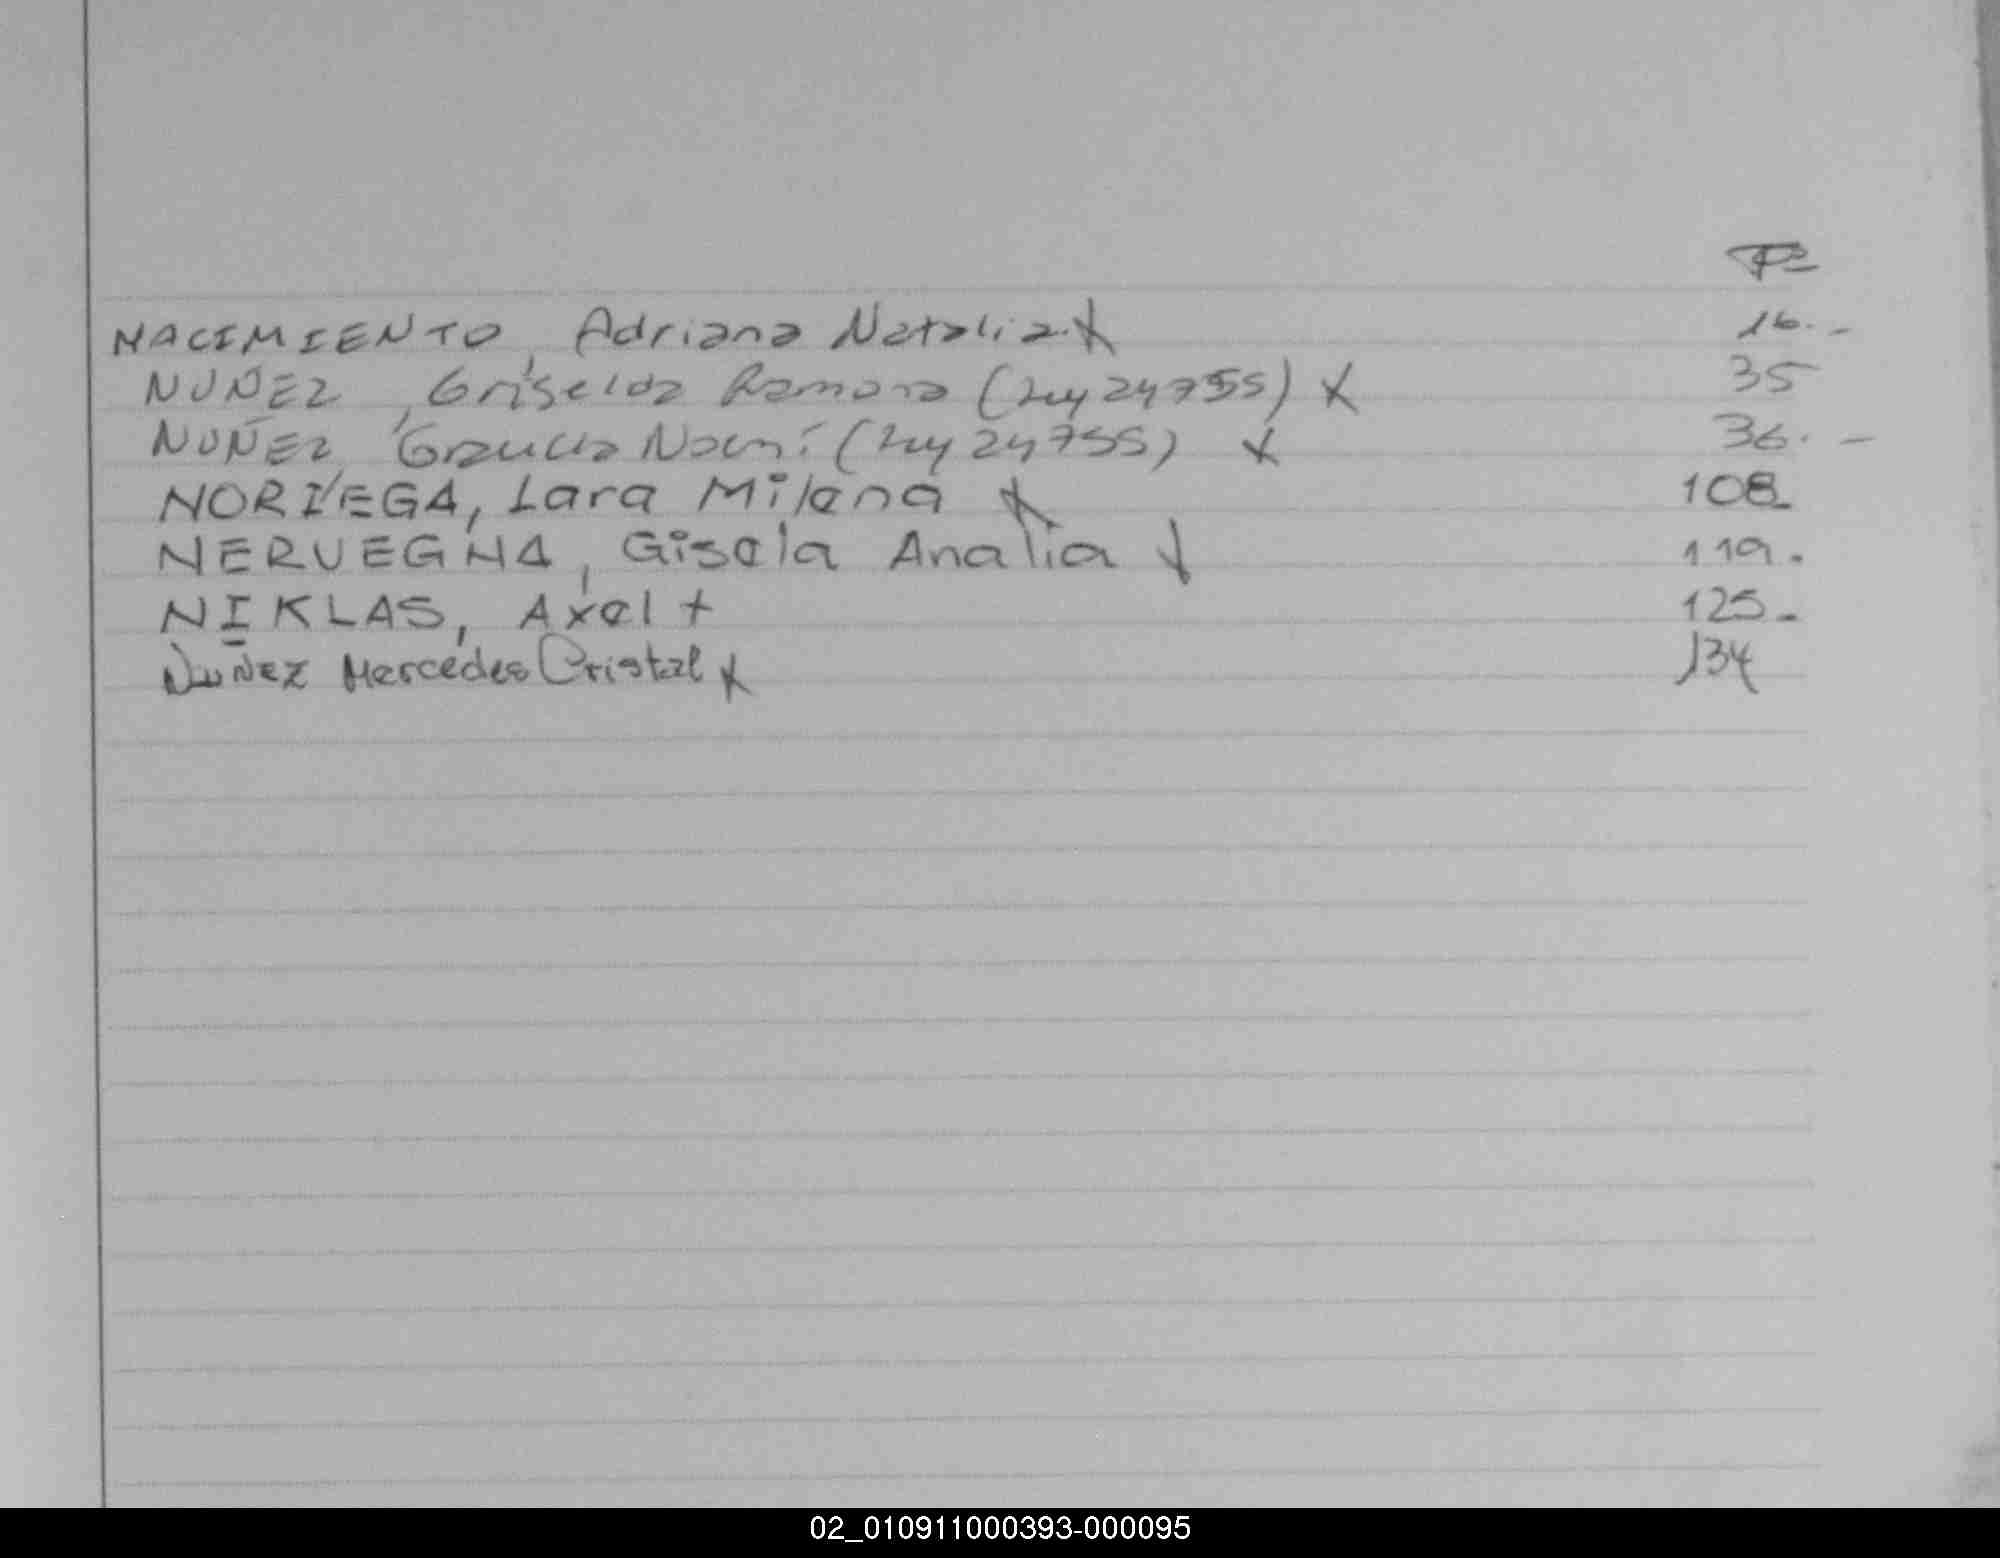 Fº
NACIMIENTO, Adriana Natalia. X 16. -
NUÑEZ, Griselda Ramona (Ley 24755) X 35
NUÑEZ, Graciela Noemí (Ley 24755) X 36. -
NORIEGA, Lara Milena X 108-
NERVEGNA, Gisela Analia X 119.
NIKLAS, Axel + 125-
NuÑez Mercedes Cristal X 134
02_010911000393-000095